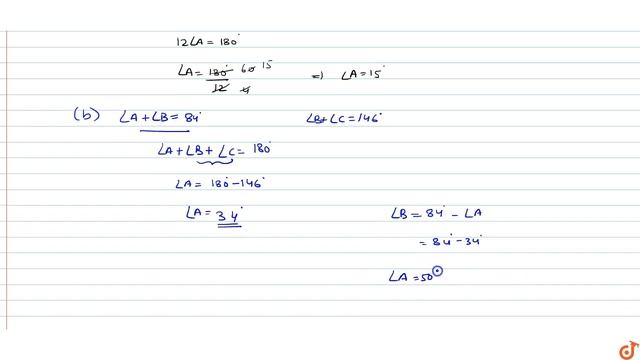 12∠A = 180°
∠A = 180° 60 15 ⇒ ∠A = 15°
12 4
(b) ∠A + ∠B = 84° ∠B + ∠C = 146°
∠A + ∠B + ∠C = 180°
∠A = 180° - 146°
∠A = 34°
∠B = 84° - ∠A
= 84° - 34°
∠A = 50°